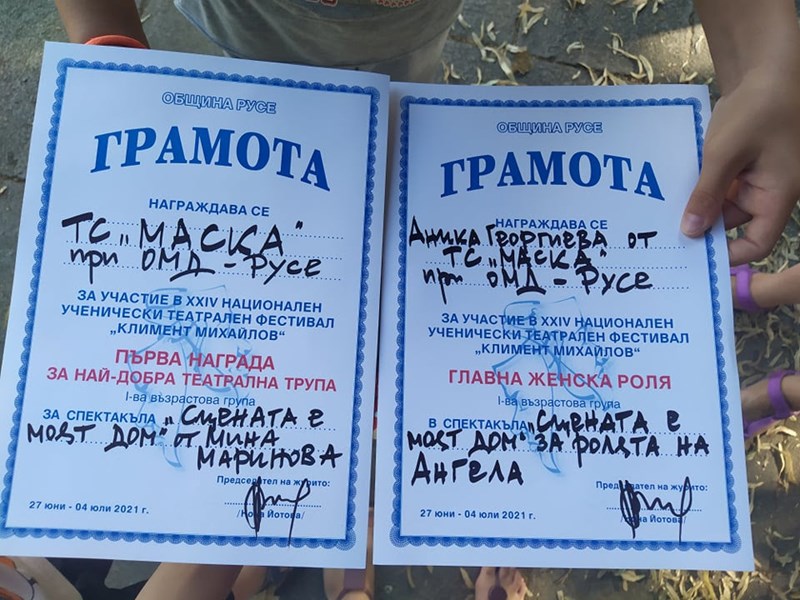 ОБЩИНА РУСЕ
ГРАМОТА
НАГРАЖДАВА СЕ
ТС „МАСКА“
при ОМД - РУСЕ
ЗА УЧАСТИЕ В XXIV НАЦИОНАЛЕН
УЧЕНИЧЕСКИ ТЕАТРАЛЕН ФЕСТИВАЛ
„КЛИМЕНТ МИХАЙЛОВ“
ПЪРВА НАГРАДА
ЗА НАЙ-ДОБРА ТЕАТРАЛНА ТРУПА
I-ва възрастова група
ЗА СПЕКТАКЪЛА „СЦЕНАТА Е
МОЯТ ДОМ“ от МИНА
МАРИНОВА
Председател на журито:
27 юни - 04 юли 2021 г.
Йотова/
ОБЩИНА РУСЕ
ГРАМОТА
НАГРАЖДАВА СЕ
АНИКА ГЕОРГИЕВА от
ТС „МАСКА“
при ОМД - РУСЕ
ЗА УЧАСТИЕ В XXIV НАЦИОНАЛЕН
УЧЕНИЧЕСКИ ТЕАТРАЛЕН ФЕСТИВАЛ
„КЛИМЕНТ МИХАЙЛОВ“
ГЛАВНА ЖЕНСКА РОЛЯ
I-ва възрастова група
В СПЕКТАКЪЛА „СЦЕНАТА Е
МОЯТ ДОМ“ ЗА РОЛЯТА НА
АНГЕЛА
Председател на журито:
27 юни - 04 юли 2021 г.
Йотова/